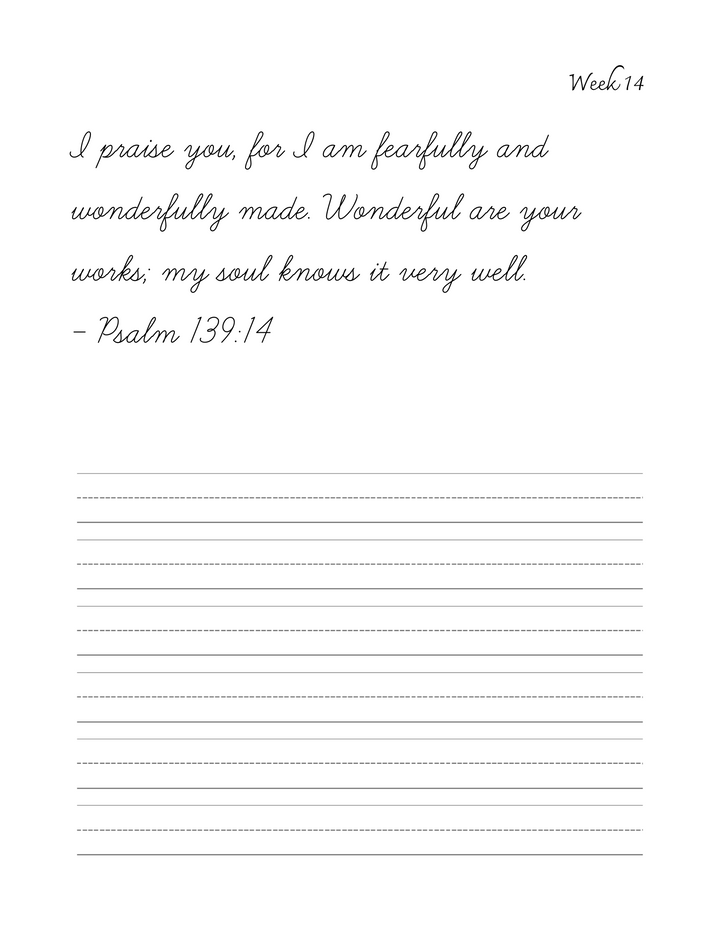 Week 14
I praise you, for I am fearfully and
wonderfully made. Wonderful are your
works; my soul knows it very well.
- Psalm 139:14